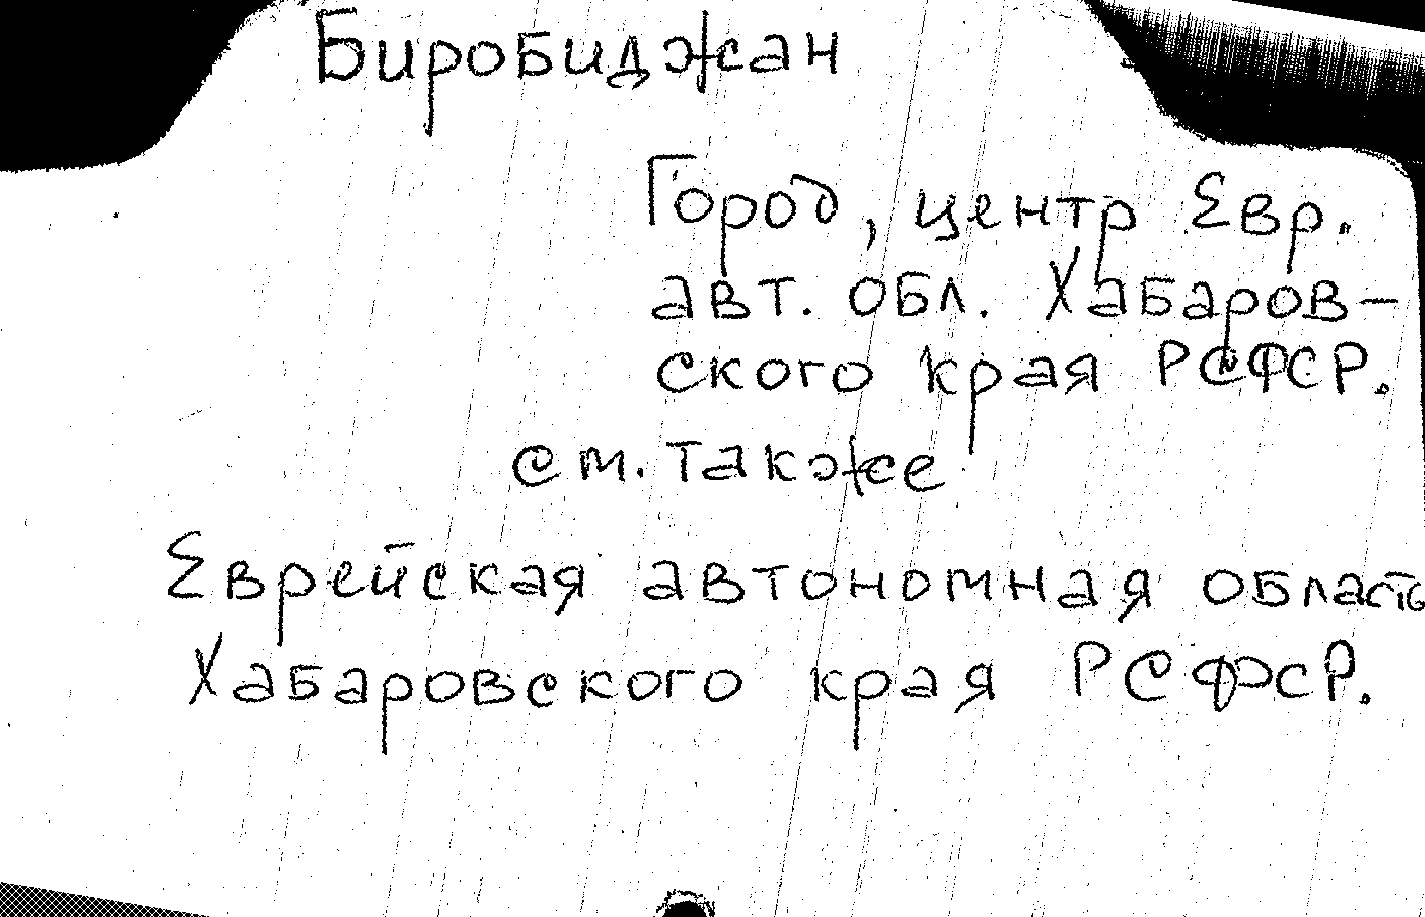 Биробиджан
Город, центр Евр.
авт. обл. Хабаров-
ского края РСФСР.
см. также
Еврейская автономная область
Хабаровского края РСФСР.